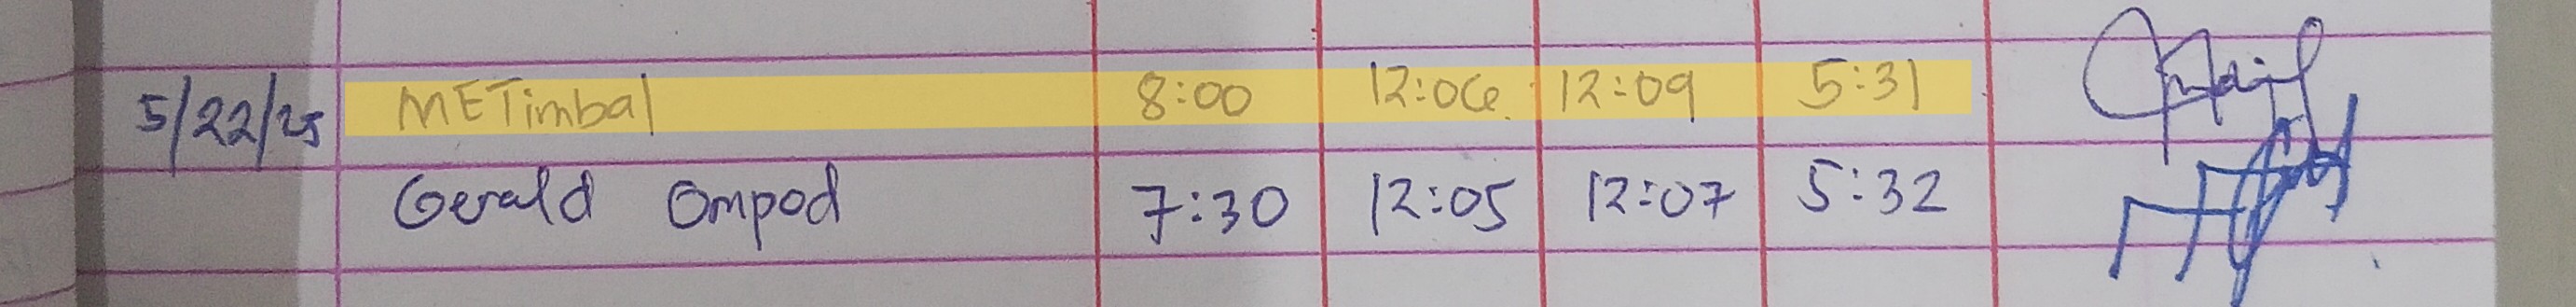 5/22/25 METimbal 8:00 12:06 12:09 5:31
Gerald Ompod 7:30 12:05 12:07 5:32